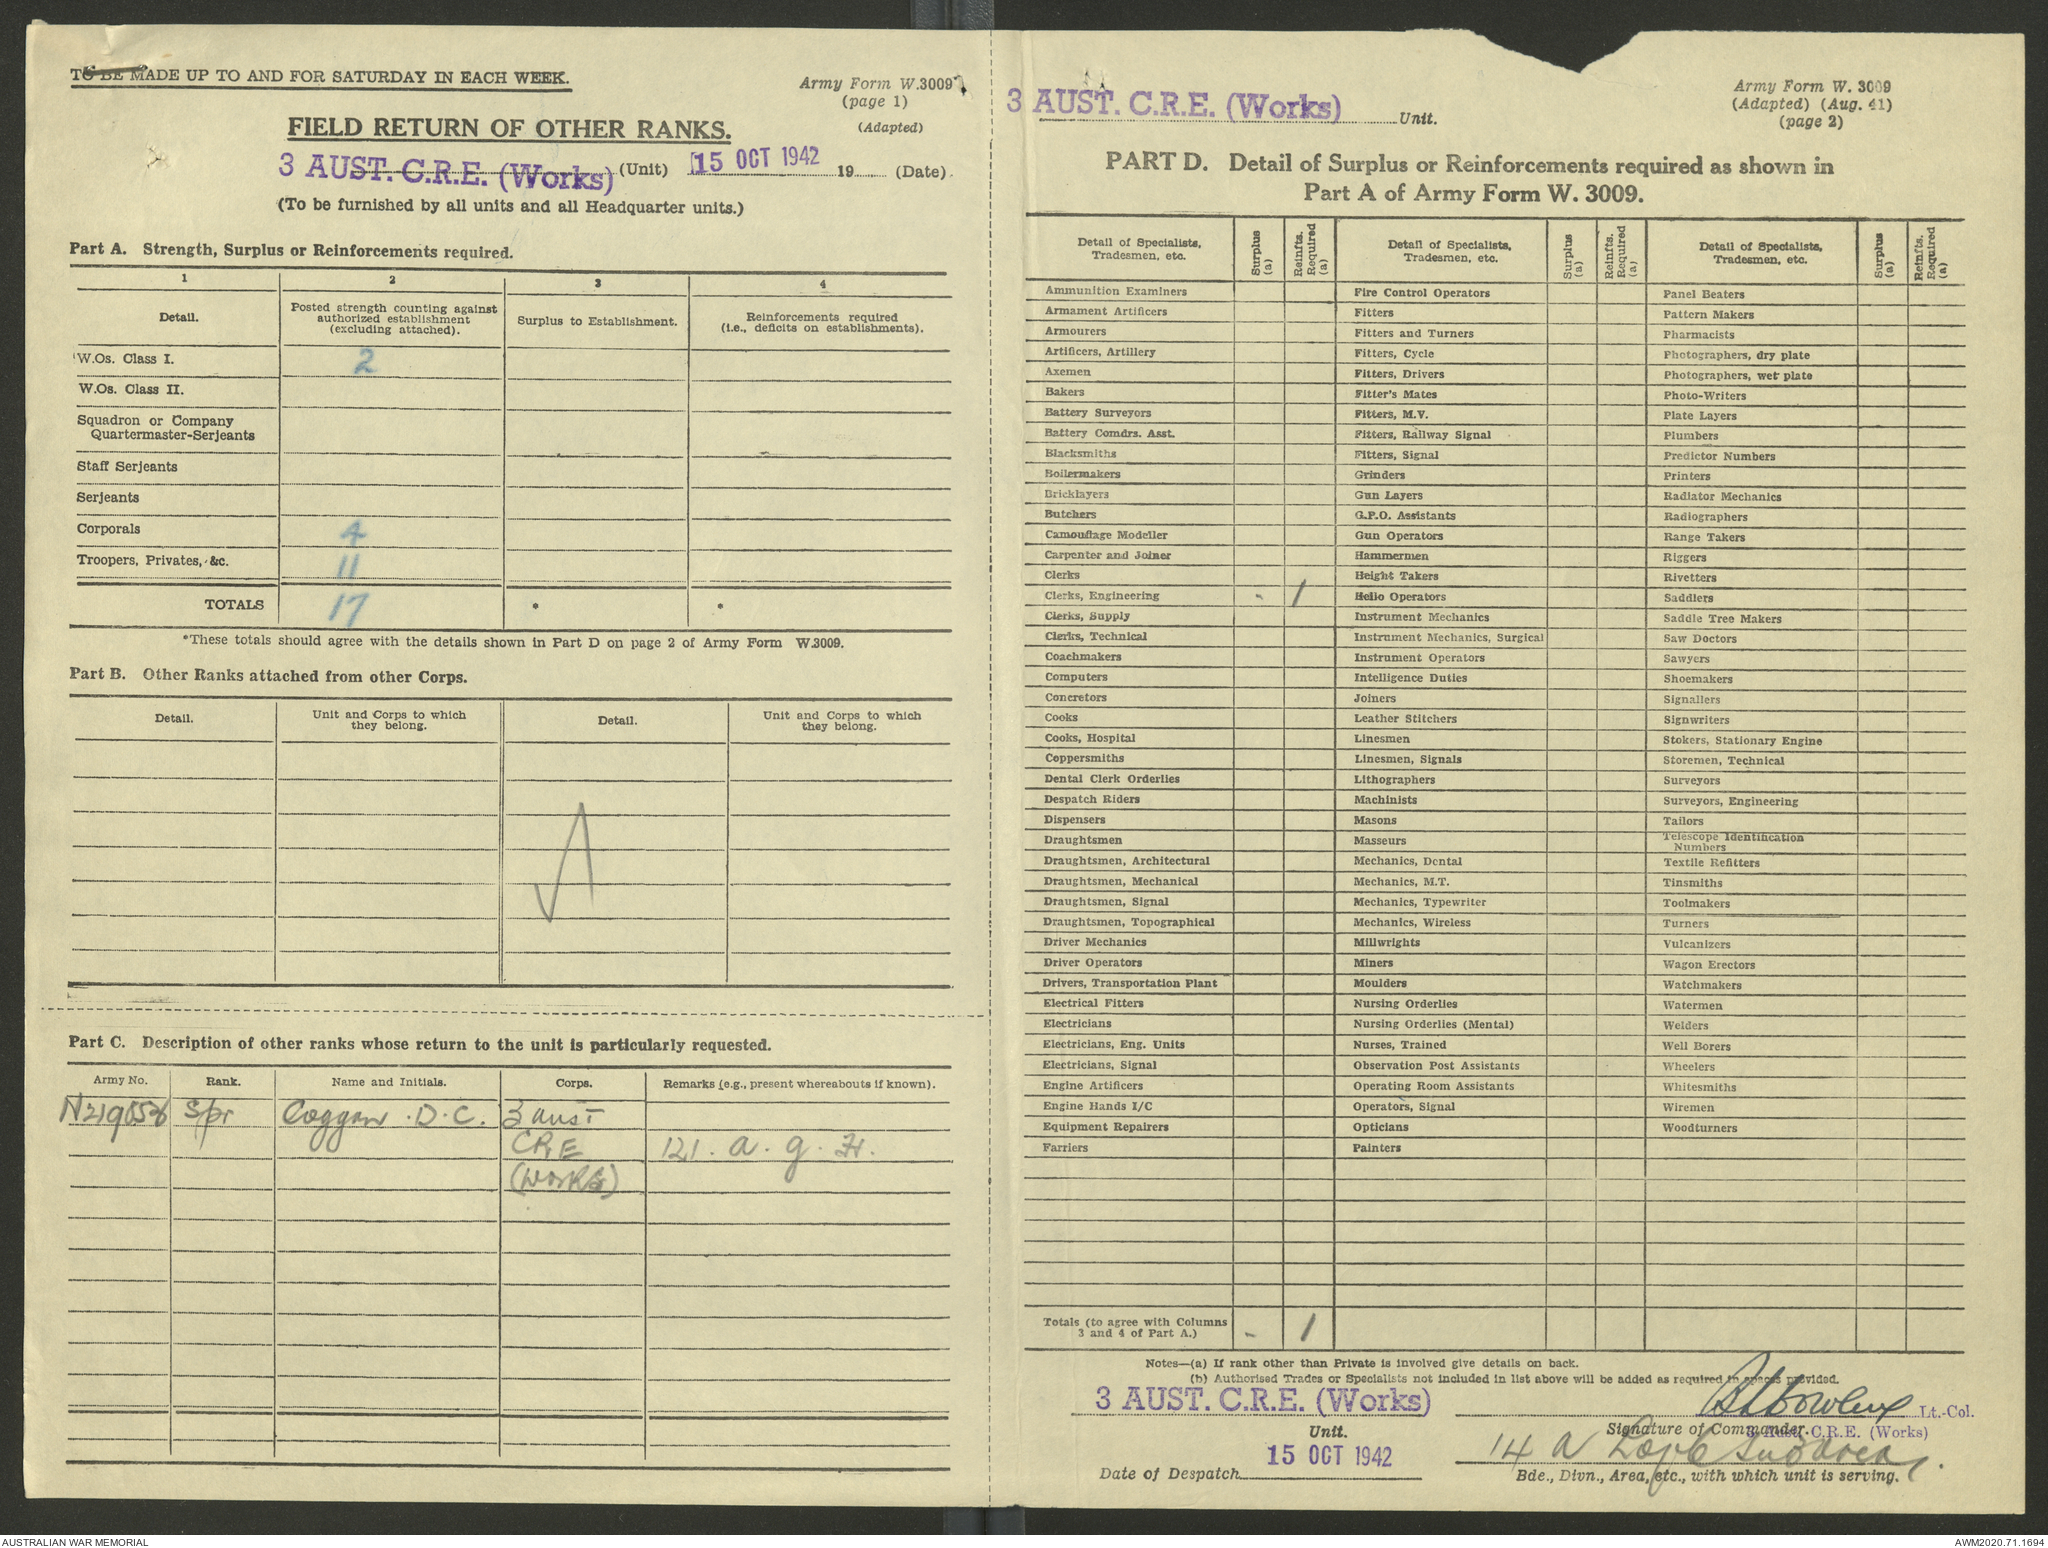 TO BE MADE UP TO AND FOR SATURDAY IN EACH WEEK.
Army Form W.3009
(page 1)
(Adapted)
FIELD RETURN OF OTHER RANKS.
3 AUST. C.R.E. (Works) (Unit) 15 OCT 1942 19 (Date).
(To be furnished by all units and all Headquarter units.)
Part A. Strength, Surplus or Reinforcements required.
1 2 3 4
Detail. Posted strength counting against authorized establishment (excluding attached). Surplus to Establishment. Reinforcements required (i.e., deficits on establishments).
W.Os. Class I. 2
W.Os. Class II.
Squadron or Company
Quartermaster-Serjeants
Staff Serjeants
Serjeants
Corporals 4
Troopers, Privates, &c. 11
TOTALS 17 * *
*These totals should agree with the details shown in Part D on page 2 of Army Form W.3009.
Part B. Other Ranks attached from other Corps.
Detail. Unit and Corps to which they belong. Detail. Unit and Corps to which they belong.
Part C. Description of other ranks whose return to the unit is particularly requested.
Army No. Rank. Name and Initials. Corps. Remarks (e.g., present whereabouts if known).
Spr Coggan . D . C. 3 Aust
CRE 121 . A . G . H .
(Works)
3 AUST. C.R.E. (Works) Unit.
Army Form W. 3009
(Adapted) (Aug. 41)
(page 2)
PART D. Detail of Surplus or Reinforcements required as shown in
Part A of Army Form W. 3009.
Detail of Specialists, Tradesmen, etc. Surplus (a) Reinfts. Required (a) Detail of Specialists, Tradesmen, etc. Surplus (a) Reinfts. Required (a) Detail of Specialists, Tradesmen, etc. Surplus (a) Reinfts. Required (a)
Ammunition Examiners Fire Control Operators Panel Beaters
Armament Artificers Fitters Pattern Makers
Armourers Fitters and Turners Pharmacists
Artificers, Artillery Fitters, Cycle Photographers, dry plate
Axemen Fitters, Drivers Photographers, wet plate
Bakers Fitter's Mates Photo-Writers
Battery Surveyors Fitters, M.V. Plate Layers
Battery Comdrs. Asst. Fitters, Railway Signal Plumbers
Blacksmiths Fitters, Signal Predictor Numbers
Boilermakers Grinders Printers
Bricklayers Gun Layers Radiator Mechanics
Butchers G.P.O. Assistants Radiographers
Camouflage Modeller Gun Operators Range Takers
Carpenter and Joiner Hammermen Riggers
Clerks Height Takers Rivetters
Clerks, Engineering - 1 Helio Operators Saddlers
Clerks, Supply Instrument Mechanics Saddle Tree Makers
Clerks, Technical Instrument Mechanics, Surgical Saw Doctors
Coachmakers Instrument Operators Sawyers
Computers Intelligence Duties Shoemakers
Concretors Joiners Signallers
Cooks Leather Stitchers Signwriters
Cooks, Hospital Linesmen Stokers, Stationary Engine
Coppersmiths Linesmen, Signals Storemen, Technical
Dental Clerk Orderlies Lithographers Surveyors
Despatch Riders Machinists Surveyors, Engineering
Dispensers Masons Tailors
Draughtsmen Masseurs Telescope Identification Numbers
Draughtsmen, Architectural Mechanics, Dental Textile Refitters
Draughtsmen, Mechanical Mechanics, M.T. Tinsmiths
Draughtsmen, Signal Mechanics, Typewriter Toolmakers
Draughtsmen, Topographical Mechanics, Wireless Turners
Driver Mechanics Millwrights Vulcanizers
Driver Operators Miners Wagon Erectors
Drivers, Transportation Plant Moulders Watchmakers
Electrical Fitters Nursing Orderlies Watermen
Electricians Nursing Orderlies (Mental) Welders
Electricians, Eng. Units Nurses, Trained Well Borers
Electricians, Signal Observation Post Assistants Wheelers
Engine Artificers Operating Room Assistants Whitesmiths
Engine Hands I/C Operators, Signal Wiremen
Equipment Repairers Opticians Woodturners
Farriers Painters
Totals (to agree with Columns
3 and 4 of Part A.) - 1
Notes—(a) If rank other than Private is involved give details on back.
(b) Authorised Trades or Specialists not included in list above will be added as required in spaces provided.
3 AUST. C.R.E. (Works) Lt.-Col.
Unit. Signature of Commander. 3 Aust. C.R.E. (Works)
15 OCT 1942 14 A
Date of Despatch Bde., Divn., Area, etc., with which unit is serving.
AUSTRALIAN WAR MEMORIAL AWM2020.71.1694